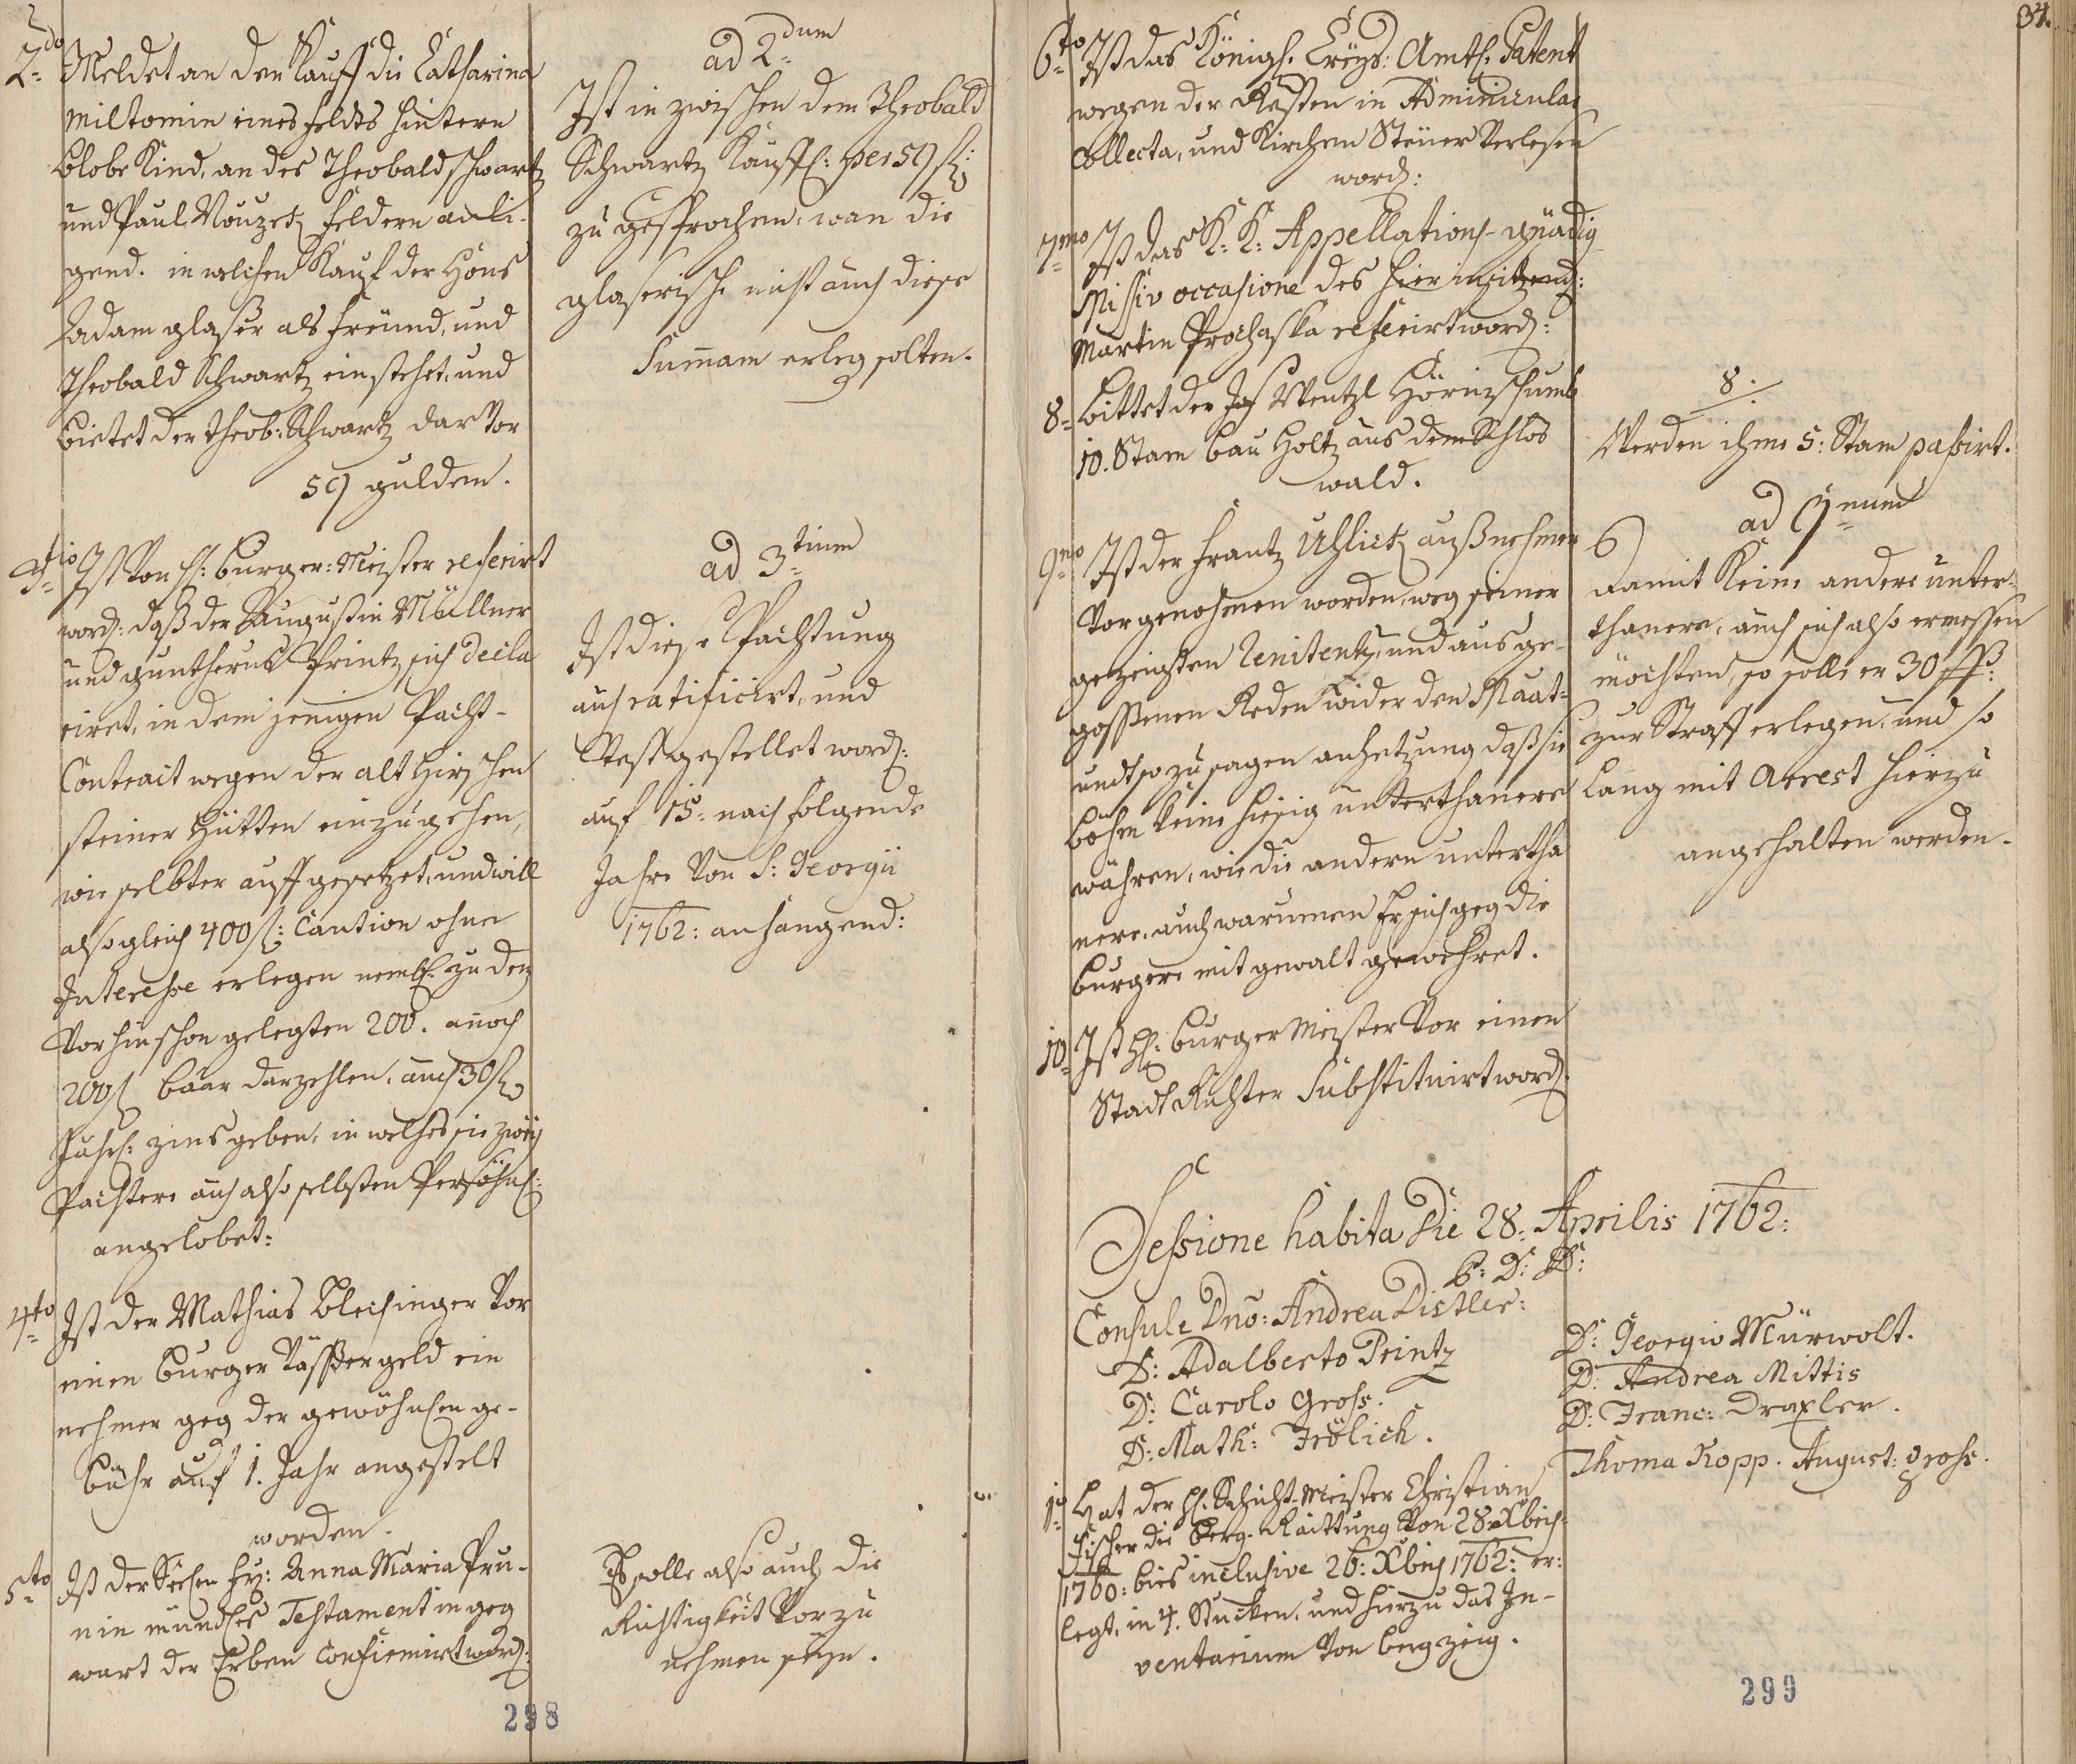 2do Meldet an den Kauff die Catharina
Miltomin eines Feldts hintern
Globe Kind, an des Theobald Schwartz
und Paul Nouzek Feldern anli-
gend. in welchen Kauf der Hons
Adam Glaser als Freund, und
Theobald Schwartz einstehet, und
bietet der Theob: Schwartz dar vor
59 gulden.
ad 2dum
Ist in zwischen dem Theobald
Schwartz Käuffl: per 59 fl:
zu gesprochen, wan die
glaserische nicht auch diese
Summam erleg solten.
3tio Ist von H: Burger-Meister referirt
word: daß der Augustin Müllner
und Guntherus Printz sich decla
riret, in dem jenigen Pacht-
Contract wegen der alt Hirschen
steiner Hütten einzugehen,
wie selbter auffgesetzet, und will
also gleich 400 fl: Caution ohne
Interesse erlegen nembl: zu den
vorhin schon gelegten 200. annoch
200 fl baar darzehlen, auch 30 fl
Jährl: zins geben, in welches sie zwey
Pachtere auch also selbsten Persöhnl:
angelobet:
ad 3tium
Ist diese Pachtung
auch ratificirt, und
Vest gestellet word:
auf 15: nach folgende
Jahre von S: Georgii
1762: anfangend:
4to Ist der Mathias Bleichinger vor
einen Burger Väßßergeld ein
nehmer geg der gewöhnlichen ge-
bühr auf 1. Jahr angestelt
worden.
5to Ist der Seelen Fr: Anna Maria Pru-
nin mündles Testament in geg
wart der Erben Confirmirt word:
Es solle also auch die
Richtigkeit vor zu
nehmen seyn.
298
34.
6to Ist das Königl. Creyß: Ambt. Patent
wegen der Resten in Adminicular
Collecta, und Kirchen Steuer verlesen
word:
7mo Ist das K: K: Appellations-gnädig
Missiv occasione des hier insitzend:
Martin Prochaska referirt word:
8= Bittet der Jos Wentzl
10. Stam bau Holtz aus dem Schlos
wald.
8:
Werden ihme 5: Stam paßirt.
9no Ist der Frantz Uhlick außnehmer
vorgenohmen worden, weg seiner
gezeigsten Renitentz, und ausge-
gossenen Reden wider den Maat-
und so zu sagen anhetzung daß sie
keine hiesig unterthanere
währen, wie die andern untertha
nere, auch warumen Er sich geg die
Burgere mit gewalt gewehret.
ad 9num
Damit Keine andere unter-
thanere, auch sich also ermessen
möchten, so solle er 30
zur Straff erlegen, und so
lang mit Arrest hierzu
angehalten werden.
10= Ist H: Burger Meister vor einen
Stadt Richter Substituirt word.
Sessione habita Die 28: Aprilis 1762:
Consule Dno: Andrea Distler:
D: Adalberto Printz
D: Carolo Gross.
D: Math: Frölich.
D: Georgio Mürwolt.
D: Andrea Mittis
D: Franc: Draxler.
Thoma Kopp. August: Gross.
1o Hat der H. Schicht-Meister Christian
Fischer die Berg-Raittung von 28: Xbris
1760: bies inclusive 26: Xbris 1762: er-
legt, in 4. Stucken, und hierzu das In-
ventarium von bergzeig.
299